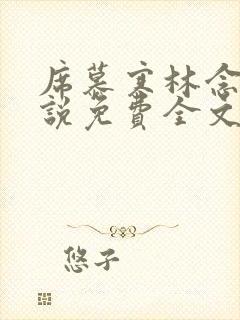 席慕寒林念
說免費全文
悠子